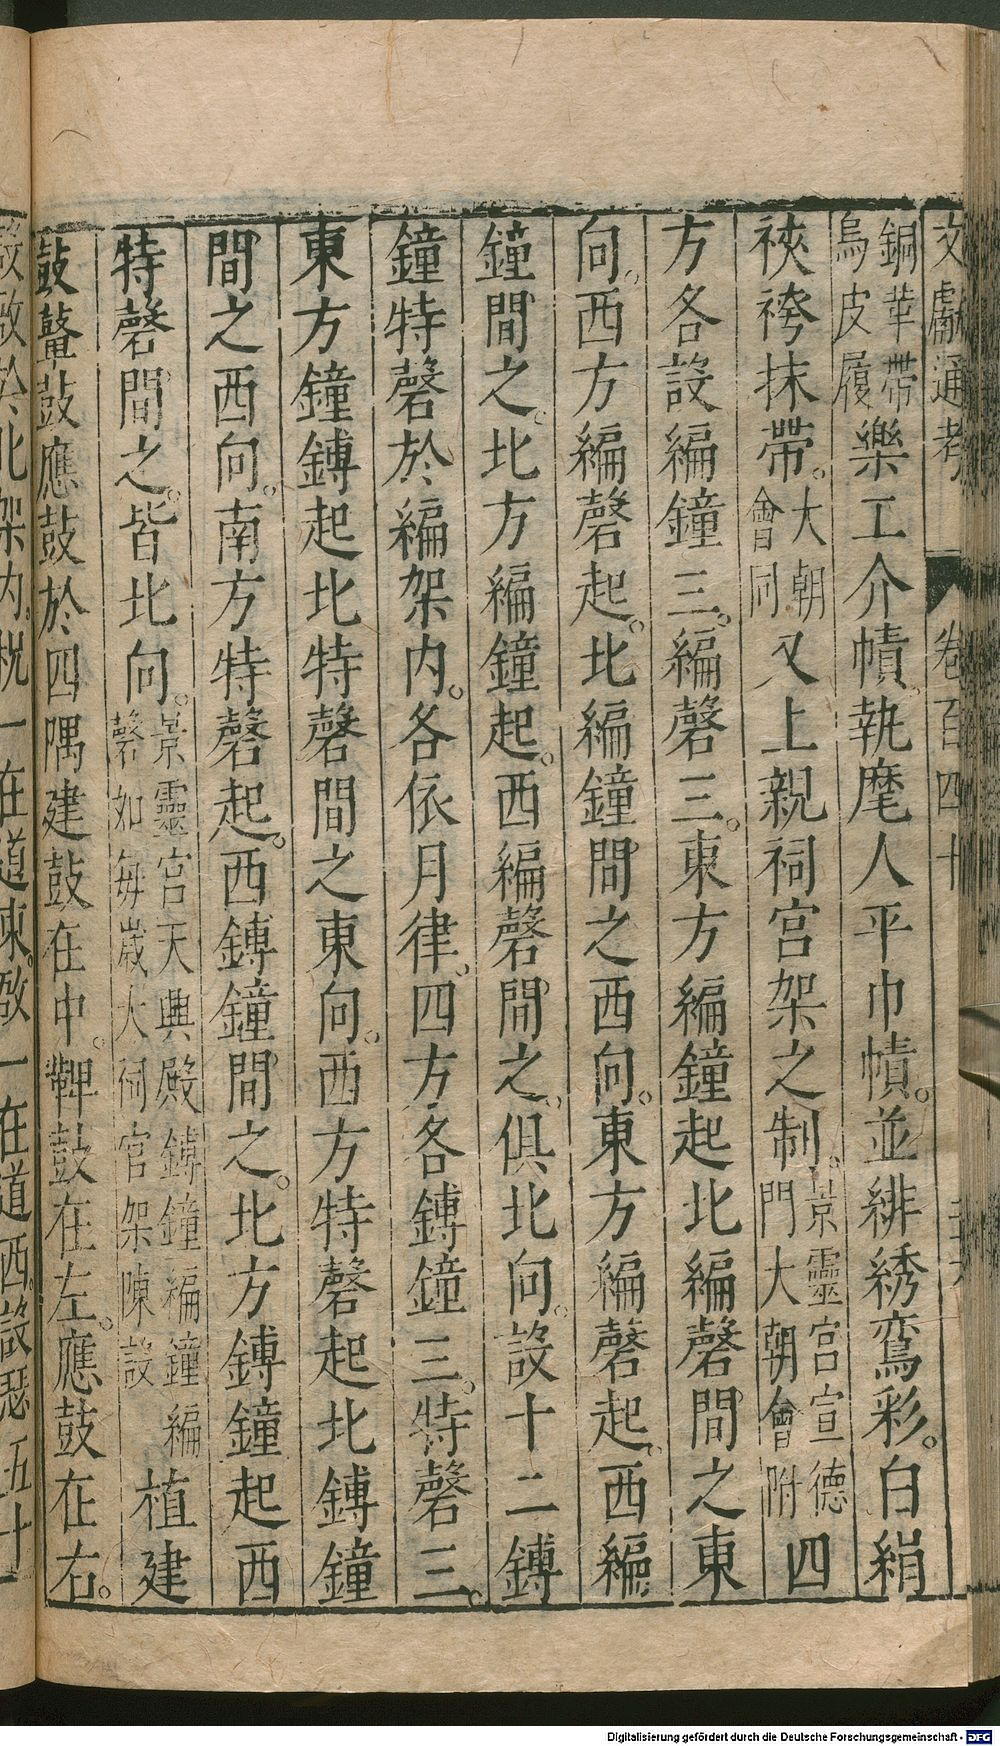 文獻通考 卷百四十
銅革帶
烏皮履
樂工介幘執麾人平巾幘。並緋綉鸞彩。白絹
裌袴抹帶。
大朝
會同
又上親祠宮架之制。
景靈宮宣德
門大朝會附
四
方各設編鐘三。編磬三。東方編鐘起北編磬間之東
向。西方編磬起。北編鐘間之西向。東方編磬起。西編
鐘間之。北方編鐘起。西編磬間之。俱北向。設十二鎛
鐘特磬於編架內。各依月律。四方各鎛鐘三。特磬三。
東方鐘鎛起北特磬間之東向。西方特磬起北鎛鐘
間之西向。南方特磬起。西鎛鐘間之。北方鎛鐘起西
特磬間之。皆北向。
景靈宮天興殿鎛鐘編鐘編
磬如每歲大祠宮架陳設
植建
鼓鞞鼓應鼓於四隅建鼓在中。鞞鼓在左。應鼓在右。
敔於北架內。柷一在道東。敔一在道西。設瑟五十
Digitalisierung gefördert durch die Deutsche Forschungsgemeinschaft - DFG